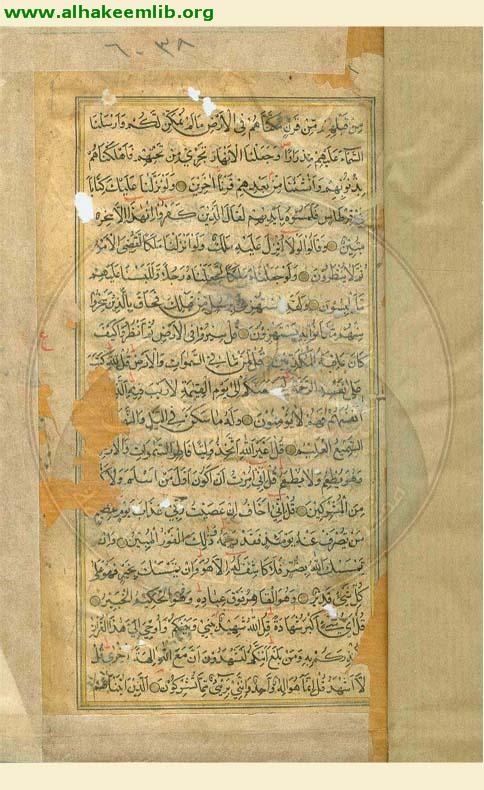 www.alhakeemlib.org
٦٠٣٨
من قبلهم من قرن مكناهم في الأرض ما لم نمكن لكم وارسلنا
السماء عليهم مدرارا وجعلنا الانهار تجري من تحتهم فاهلكناهم
بذنوبهم وانشأنا من بعدهم قرنا آخرين ولو نزلنا عليك كتابا
قرطاس فلمسوه بايديهم لقال الذين كفروا ان هذا الا سحر
مبين وقالوا لولا انزل عليه ملك ولو انزلنا ملكا لقضي الامر
ثم لا ينظرون ولو جعلناه ملكا لجعلناه رجلا وللبسنا عليهم
ما يلبسون ولقد استهزئ برسل من قبلك فحاق بالذين سخروا
منهم ما كانوا به يستهزؤن قل سيروا في الارض ثم انظروا كيف
كان عاقبة المكذبين قل لمن ما في السموات والارض قل لله كتب
على نفسه الرحمة ليجمعنكم الى يوم القيمة لا ريب فيه الذين
انفسهم فهم لا يؤمنون وله ما سكن في الليل والنهار
السميع العليم قل اغير الله اتخذ وليا فاطر السموات والارض
وهو يطعم ولا يطعم قل اني امرت ان اكون اول من اسلم ولا
من المشركين قل اني اخاف ان عصيت ربي عذاب يوم عظيم
من يصرف عنه يومئذ فقد رحمه وذلك الفوز المبين وان
يمسسك الله بضر فلا كاشف له الا هو وان يمسسك بخير فهو على
كل شيء قدير وهو القاهر فوق عباده وهو الحكيم الخبير
قل اي شيء اكبر شهادة قل الله شهيد بيني وبينكم واوحي الي هذا القران
لانذركم به ومن بلغ ائنكم لتشهدون ان مع الله الهة اخرى قل
لا اشهد قل انما هو اله واحد وانني بريء مما تشركون الذين آتيناهم